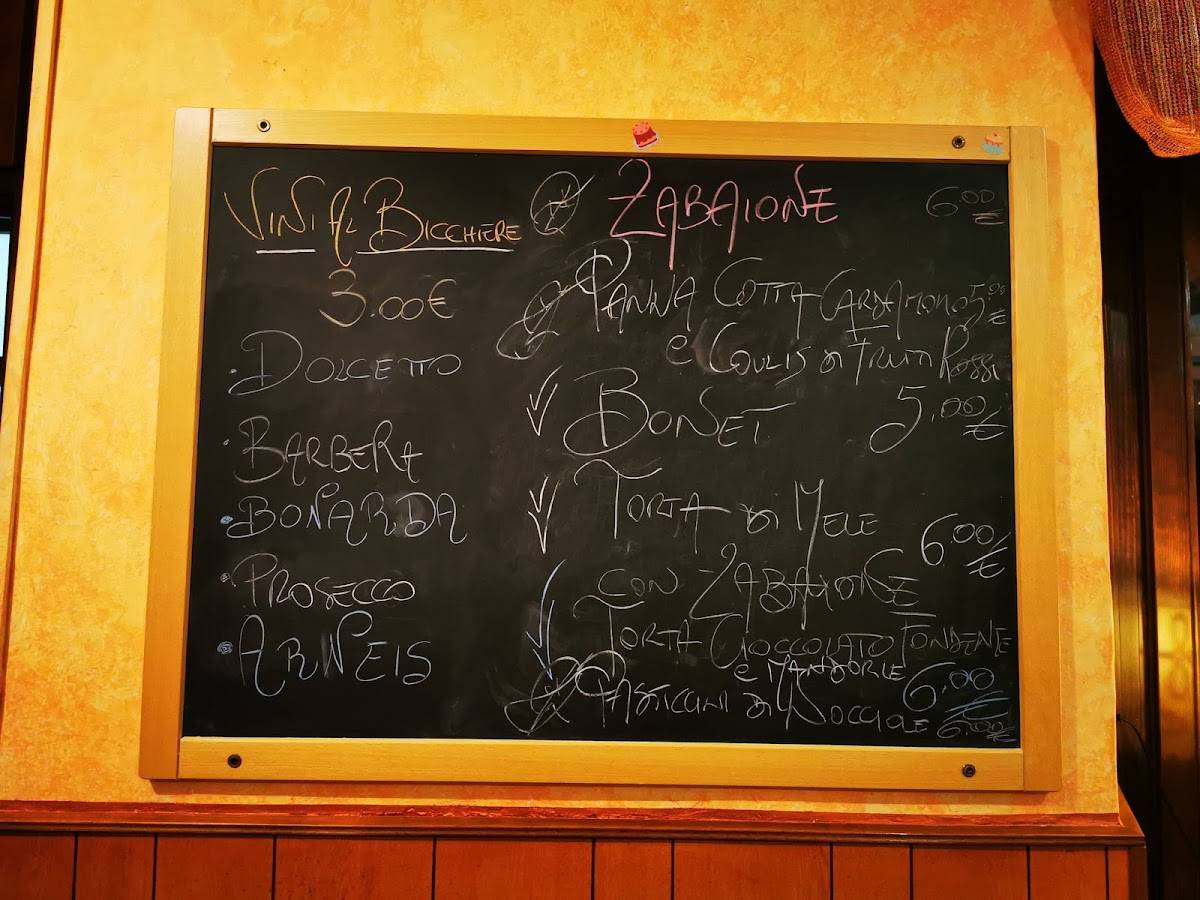 VINI AL BICCHIERE
3.00€
· DOLCETTO
· BARBERA
· BONARDA
· PROSECCO
· ARNEIS
ZABAIONE 6.00 €
PANNA COTTA CARDAMOMO 5.00 €
e COULIS di FRUTTI ROSSI
BONET 5.00 €
TORTA di MELE
CON ZABAIONE 6.00 €
TORTA CIOCCOLATO FONDENTE
e MANDORLE 6.00
PASTICCINI di NOCCIOLE 6.00 €